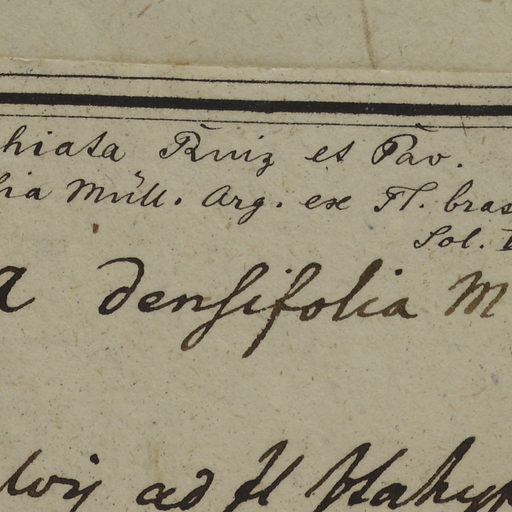 hiata Ruiz et Pav.
lia Müll. Arg. ex Fl. bras
Sol. I
a densifolia M
ad fl Itahyp